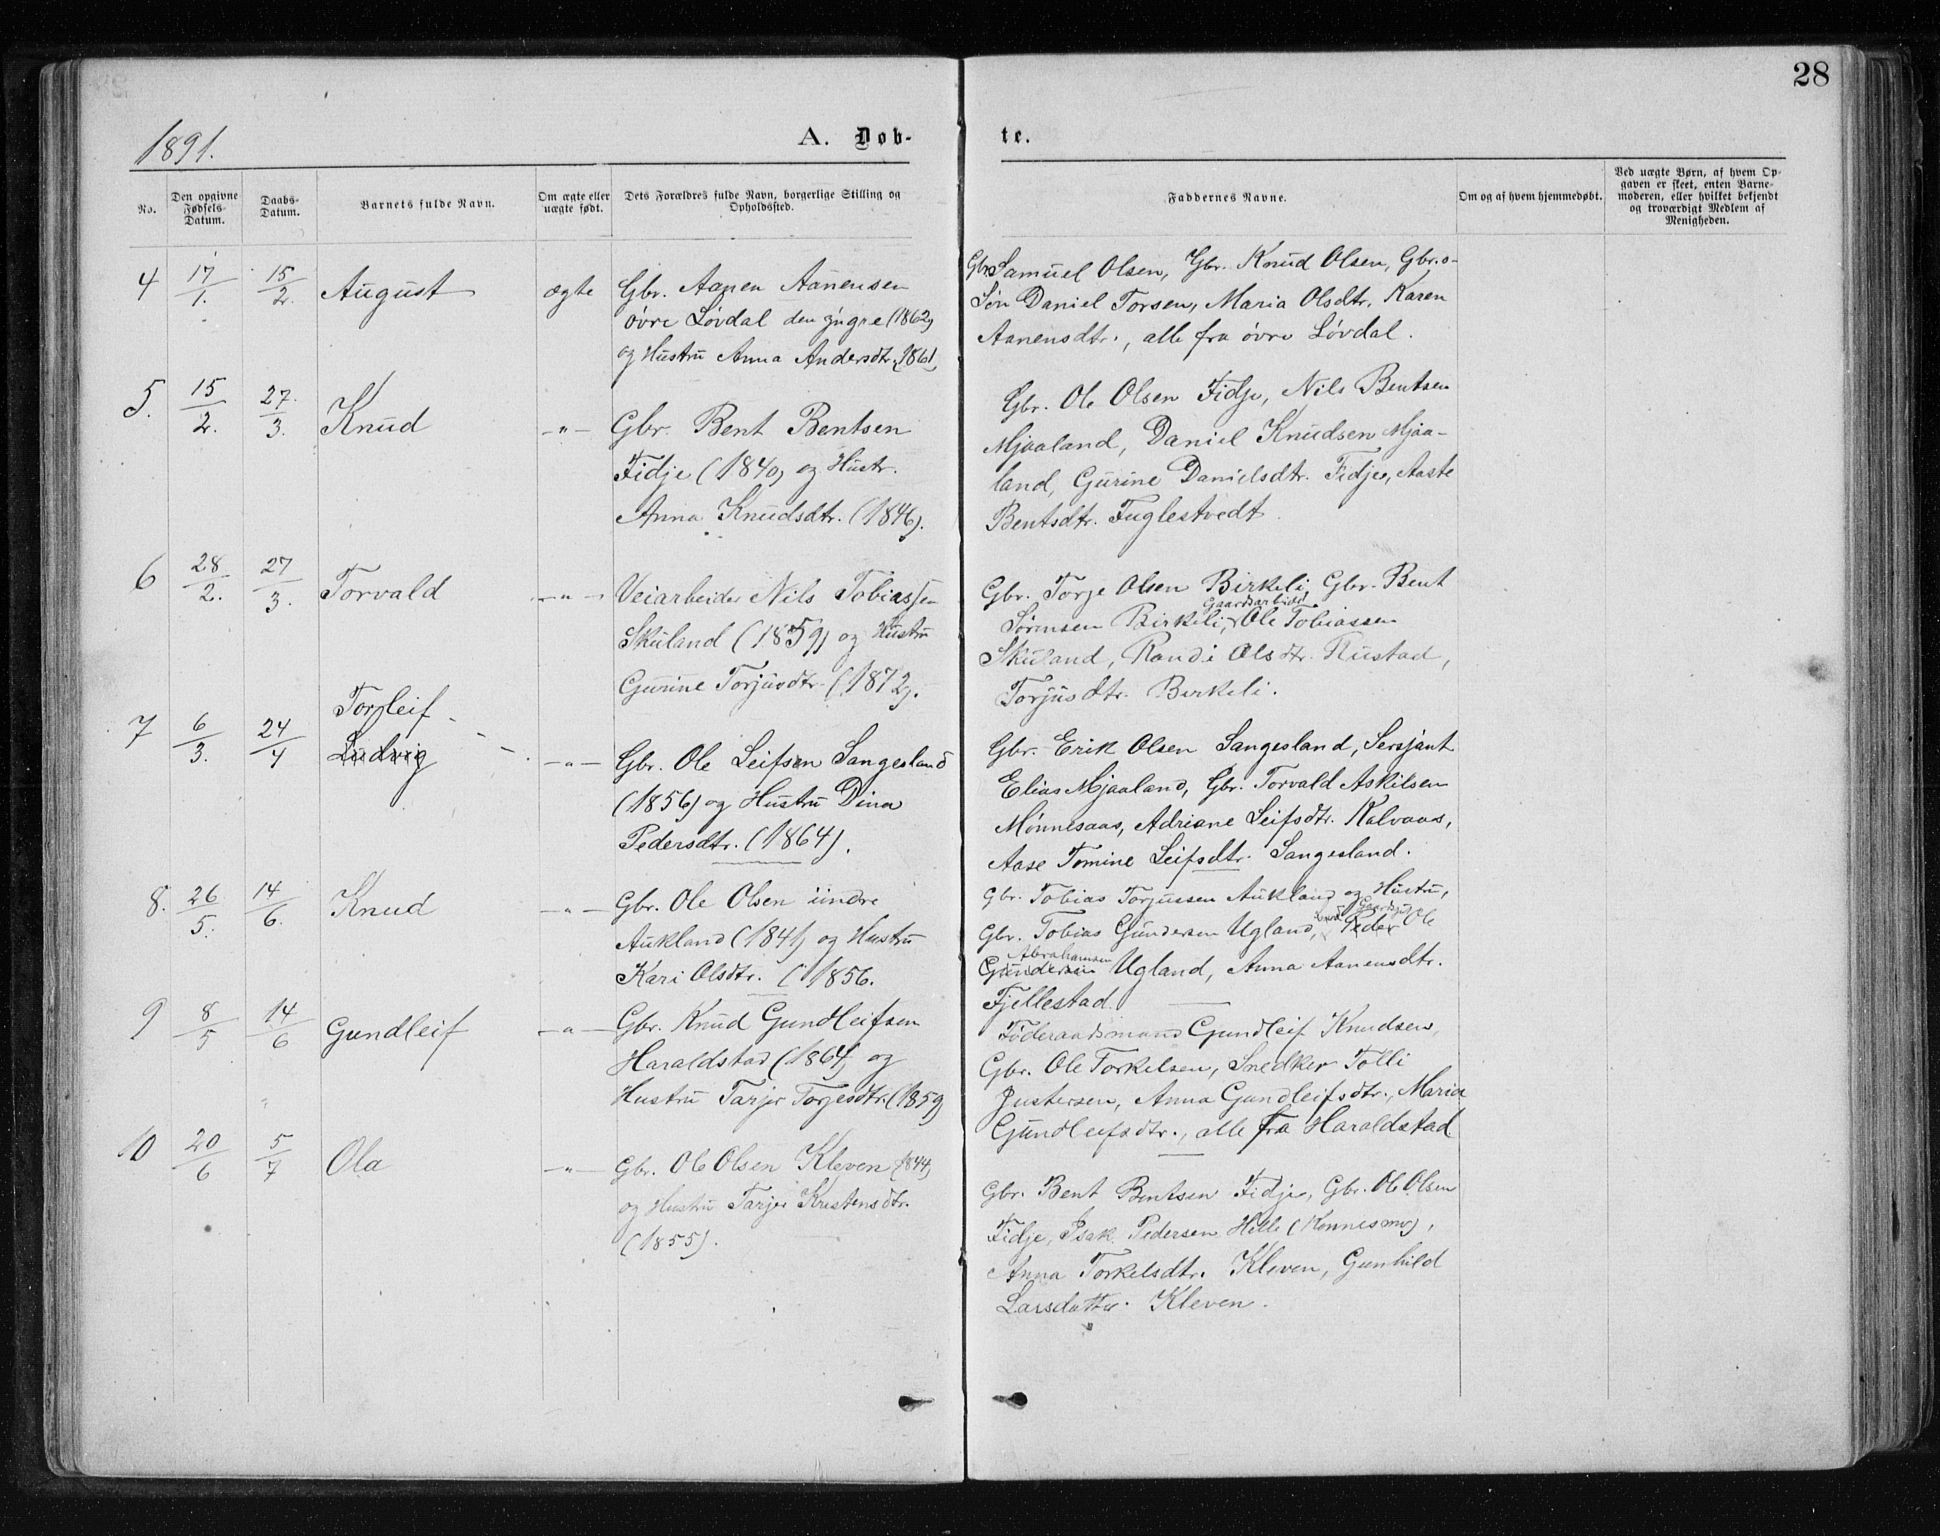 28
1891.
A. Døb-
te.
No.
Den opgivne Fødsels-Datum.
Daabs-Datum.
Barnets fulde Navn.
Om ægte eller uægte født.
Dets Forældres fulde Navn, borgerlige Stilling og Opholdssted.
Faddernes Navne.
Om og af hvem hjemmedøbt.
Ved uægte Børn, af hvem Op-
gaven er skeet, enten Barne-
moderen, eller hvilket bekjendt
og troværdigt Medlem af
Menigheden.
4 17/1. 15/2. August ægte
Gbr. Aanen Aanensen
övre Lövdal den yngre (1862)
og Hustru Anna Andersdtr. (1861)
Gbr. Samuel Olsen, Gbr. Knud Olsen, Gbr.s-
Søn Daniel Torsen, Maria Olsdtr. Karen
Aanensdtr., alle fra övre Lövdal.
5. 15/2. 27/3. Knud —"—
Gbr. Bent Bentsen
Fidje (1840) og Hustr.
Anna Knudsdtr. (1846).
Gbr. Ole Olsen Fidje, Nils Bentsen
Mjaaland, Daniel Knudsen Mjaa-
land, Gurine Danielsdtr. Fidje, Aaste
Bentsdtr. Fuglestvedt.
6 28/2. 27/3. Torvald —"—
Veiarbeider Nils Tobiassen
Skuland (1859) og Hustru
Gurine Torjusdtr. (1872).
Gbr. Torje Olsen Birkeli, Gbr. Bent
Gaardsarbeider
Sørensen Birkeli, Ole Tobiassen
Skuland, Randi Olsdtr. Rustad,
Torjusdtr. Birkeli.
7 6/3. 24/4 Torleif
Ludvig —"—
Gbr. Ole Leifsen Sangesland
(1856) og Hustru Dina
Pedersdtr. (1864).
Gbr. Erik Olsen Sangesland, Sersjant
Elias Mjaaland, Gbr. Torvald Askilsen
Mönnesaas, Adriane Leifsdtr. Kalvaas,
Aase Tomine Leifsdtr. Sangesland.
8. 26/5. 14/6. Knud —"—
Gbr. Ole Olsen indre
Aukland (1841) og Hustru
Kari Olsdtr. (1856.
Gbr. Tobias Torjussen Aukland og Hustru,
Gbr. Tobias Gundersen Ugland, Peder Ole
Abrahamsen
Gundersen Ugland, Anna Aanensdtr.
Fjellestad.
9 8/5 14/6 Gundleif —"—
Gbr. Knud Gundleifsen
Haraldstad (1864) og
Hustru Tarjer Torjesdtr. (1859)
Föderaadsmand Gundleif Knudsen,
Gbr. Ole Torkelsen, Snedker Tolli
Justersen, Anna Gundleifsdtr., Maria
Gundleifsdtr., alle fra Haraldstad
10 20/6 5/7 Ola —"—
Gbr. Ole Olsen Kleven (1844)
og Hustru Tarjer Kristensdtr.
(1855).
Gbr. Bent Bentsen Fidje, Gbr. Ole Olsen
Fidje, Isak Pedersen Hille (Konnesmo),
Anna Torkelsdtr. Kleven, Gunhild
Larsdatter Kleven.